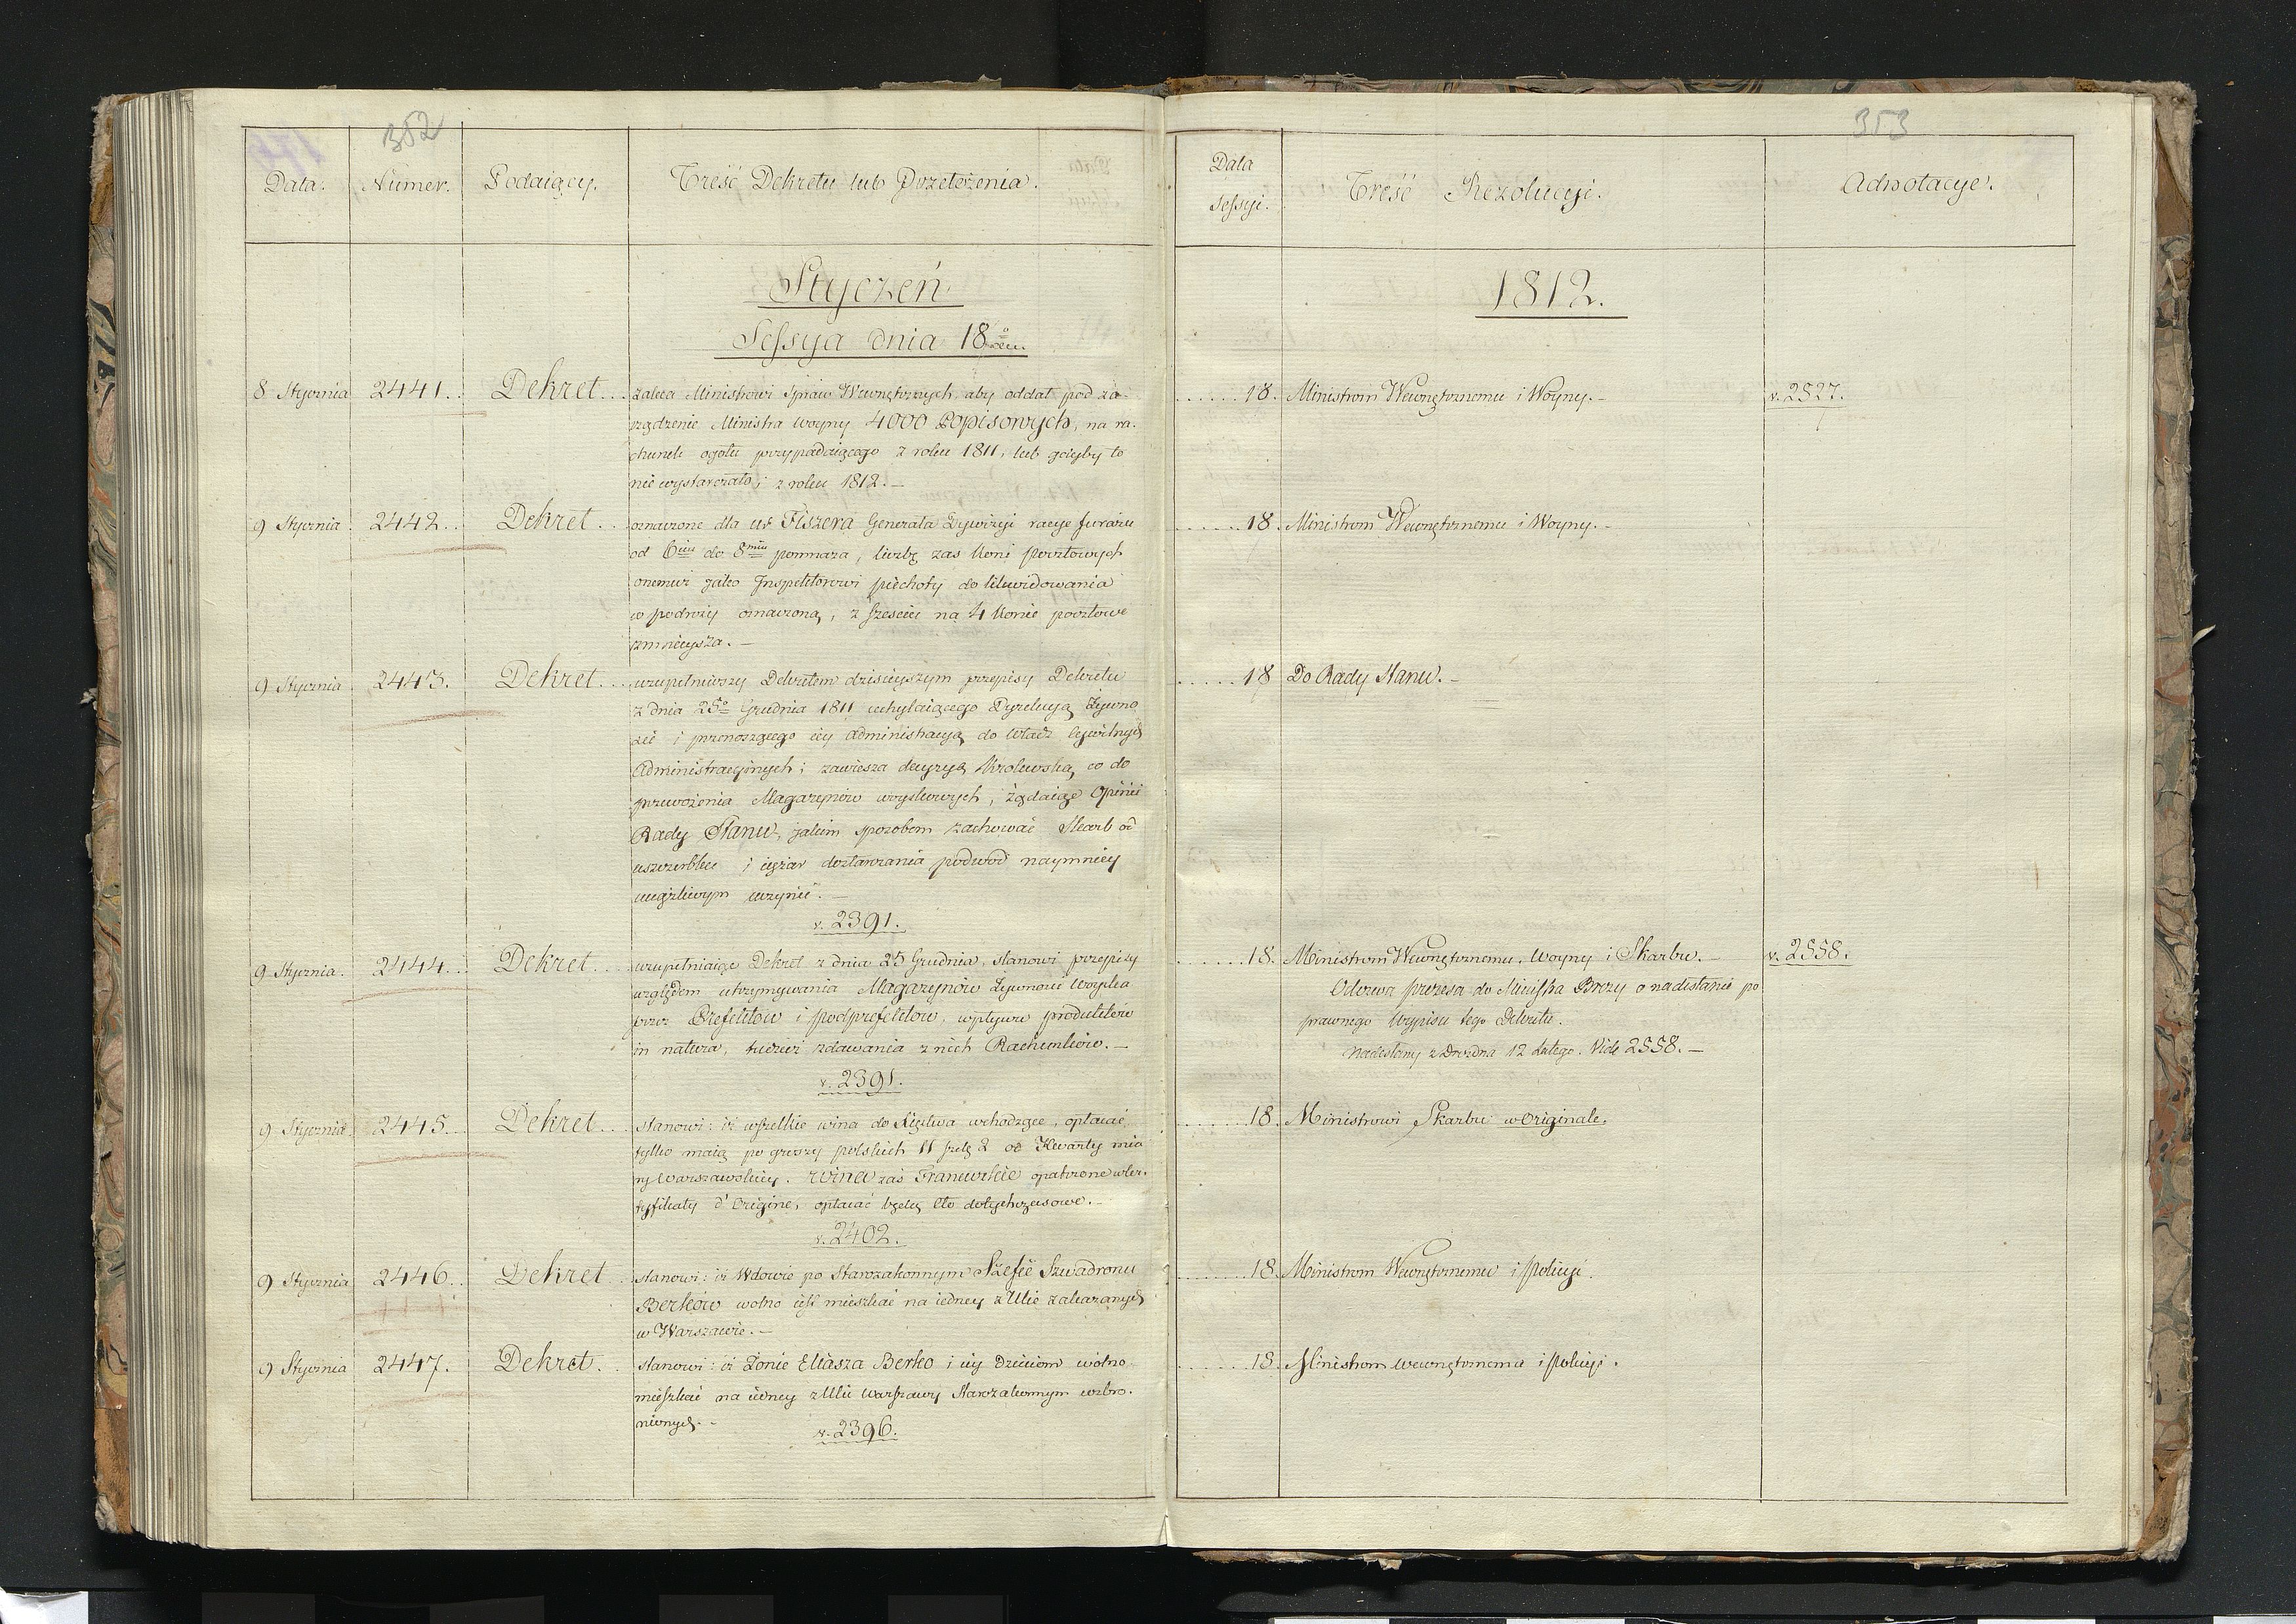 352
Data. Numer. Podaiący. Treść Dekretu lub Przełożenia.
Styczeń
Sessya dnia 18
8 Stycznia 2441. Dekret. zaleca Ministrowi Spraw Wewnętrznych, aby oddał pod za-
rządzenie Ministra woyny 4000 Popisowych, na ra-
chunek ogółu przypadaiącego z roku 1811, lub gdyby to
nie wystarczało, z roku 1812. —
9 Stycznia 2442. Dekret. oznaczone dla Fiszera Generała Dywizyi racye furażu
od 6ciu do 8miu pomnaża, liczbę zas koni pocztowych
onemuż jako Inspektorowi piechoty do likwidowania
w podroży oznaczoną, z sześciu na 4 konie pocztowe
zmnieysza. —
9 Stycznia 2443. Dekret. uzupełniwszy Dekretem dzisieyszym przepisy Dekretu
z dnia 25o Grudnia 1811 uchylaiącego Dyrekcyą Żywno
ści i przenoszącego iey administracyą do władz cywilnych
Administracyjnych; zawiesza decyzyą Krolewską co do
przewożenia Magazynow woyskowych, żądaiąc Opinii
Rady Stanu, jakim sposobem zachować Skarb od
uszczerbku i ciężar dostarczania podwod naymniey
uciążliwym uczynić. —
v. 2391.
9 Stycznia. 2444. Dekret. uzupełniaiąc Dekret z dnia 25 Grudnia, stanowi przepisy
względem utrzymywania Magazynów Żywności woyska
przez Prefektow i podprefektow, wpływu produktów
in natura, tudzież zdawania z nich Rachunkow. —
v. 2391.
9 Stycznia 2445. Dekret. stanowi: iż wszelkie wina do Xięstwa wchodzące, opłacać
tylko maią po groszy polskich 11 szelg 2 od Kwarty mia
ry warszawskiey. wina zaś Francuzkie opatrzone w Cer-
tyfikaty d'Origine, opłacać będą Cło dotychczasowe. —
v. 2402.
9 Stycznia 2446. Dekret stanowi: iż Wdowie po Starozakonnym Szefie Szwadronu
Berków wolno iest mieszkać na iedney z Ulic zakazanych
w Warszawie. —
9 Stycznia 2447. Dekret. stanowi: iż Żonie Eliasza Berko i iey Dzieciom wolno
mieszkać na iedney z Ulic Warszawy Starozakonnym wzbro-
nionych. —
v. 2396.
353
Data Sessyi. Treść Rezolucyi. Adnotacye.
1812.
18. Ministrom Wewnętrznemu i Woyny. — v. 2527.
18. Ministrom Wewnętrznemu i Woyny. —
18 Do Rady Stanu. —
18. Ministrom Wewnętrznemu, Woyny i Skarbu. — v. 2558.
Odezwa prezesa do Ministra Brezy o nadesłanie po
prawnego wypisu tego Dekretu.
Nadesłany z Drezna 12 Lutego. Vide 2558. —
18. Ministrowi Skarbu w Originale.
18. Ministrom Wewnętrznemu i policyi.
18. Ministrom wewnętrznemu i policyi.